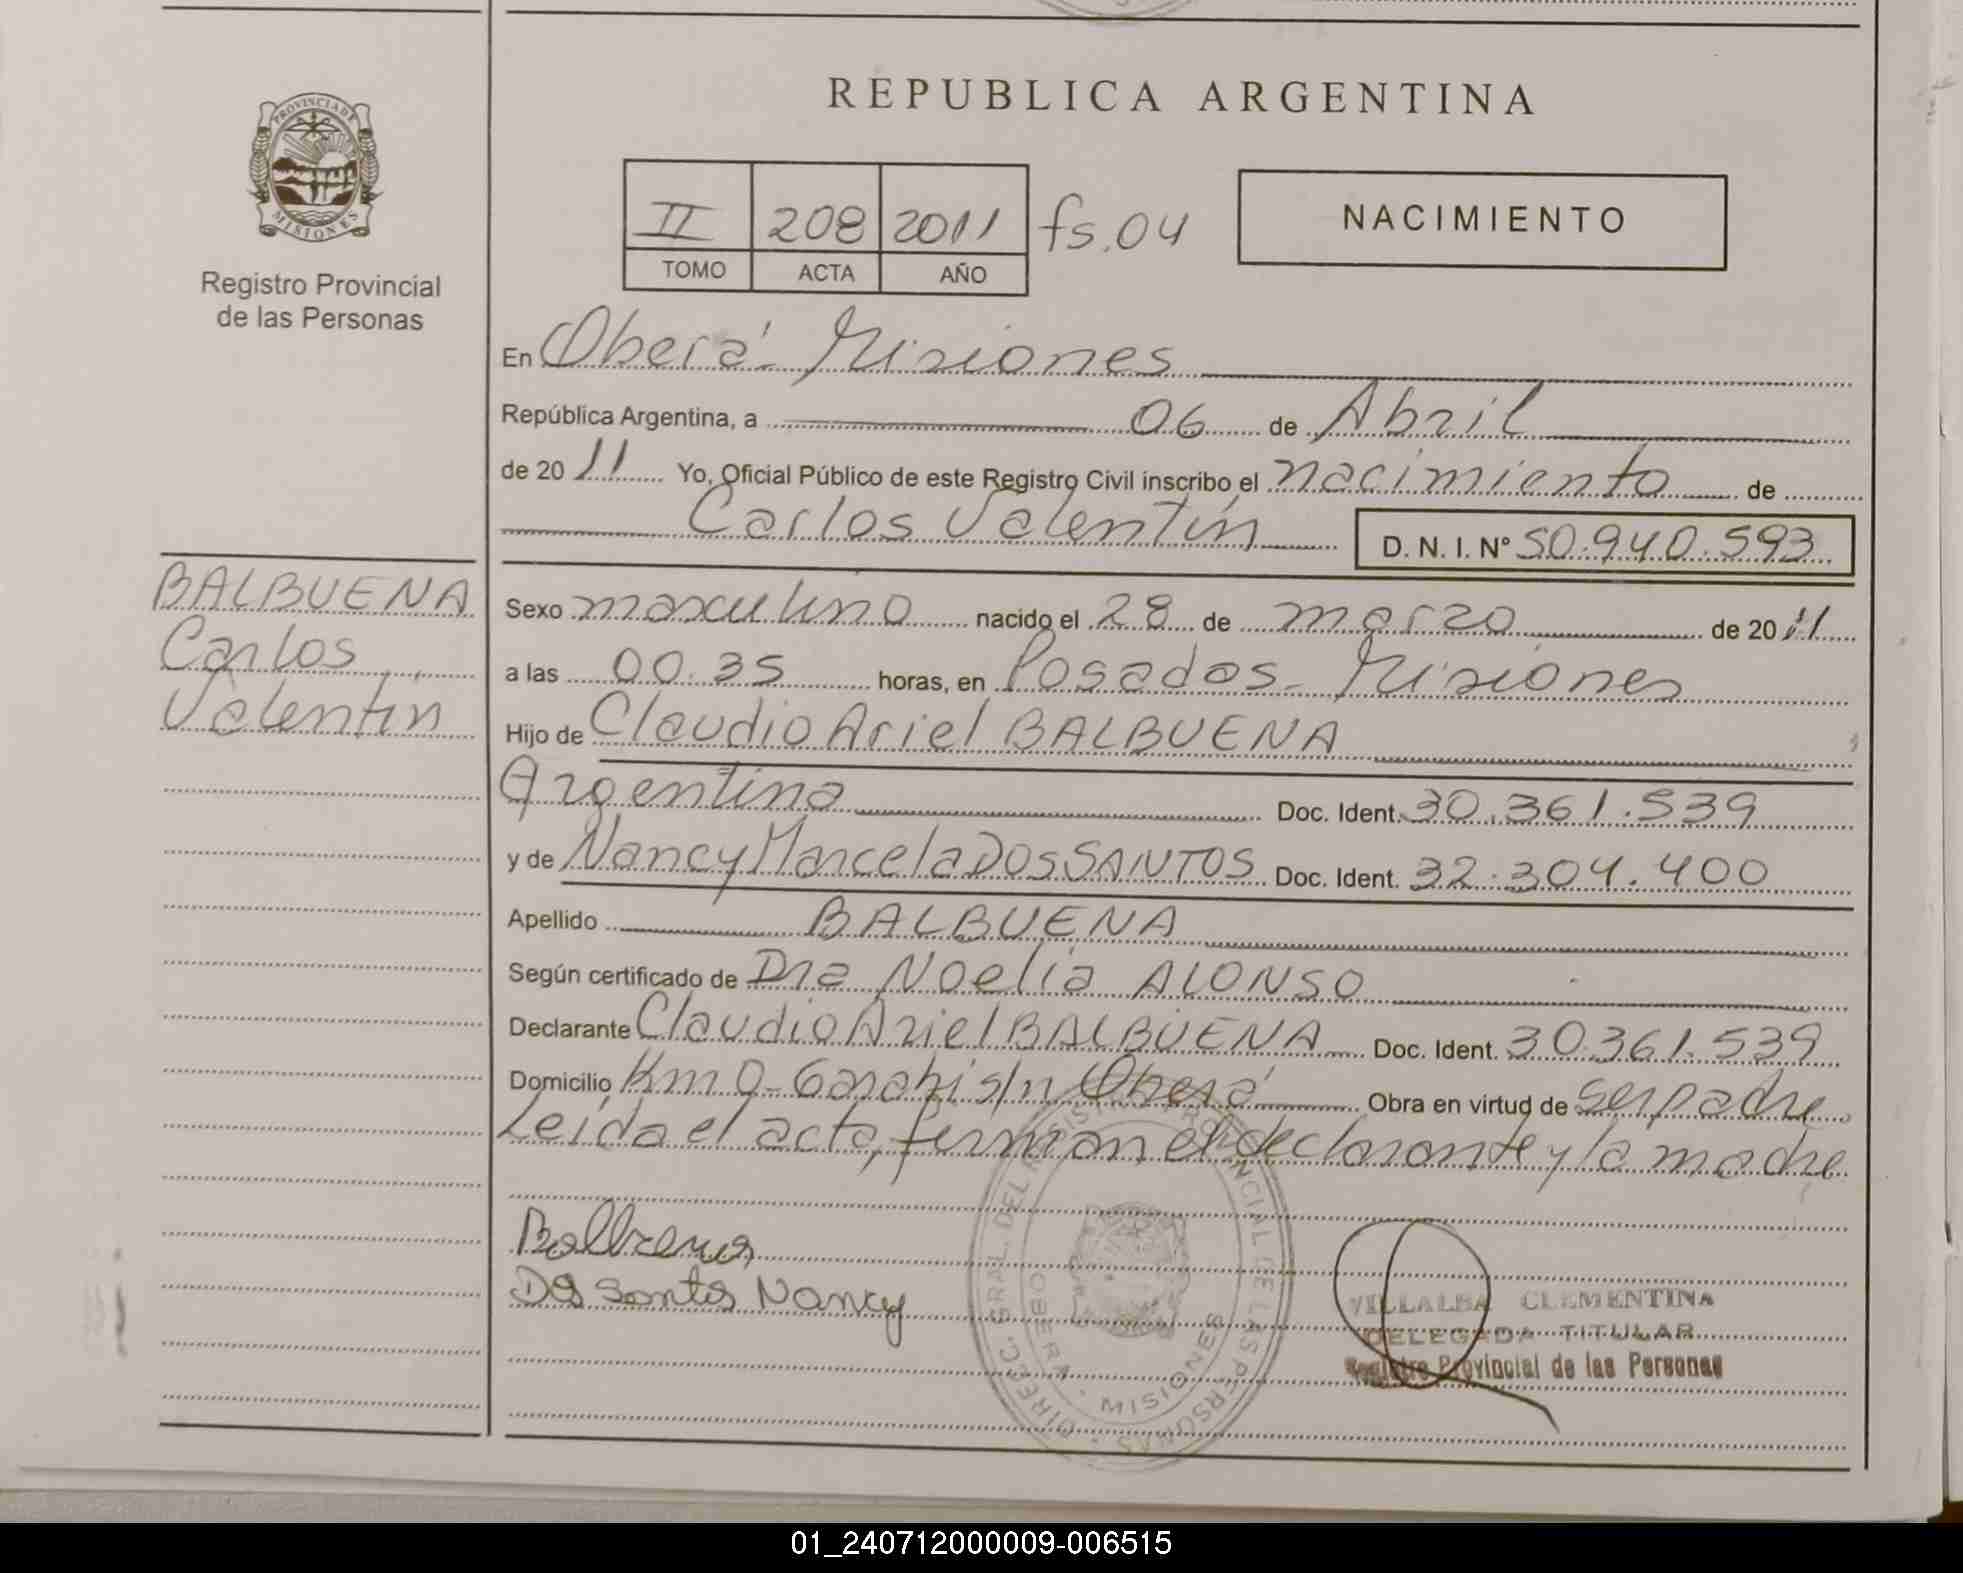 REPUBLICA ARGENTINA
PROVINCIA DE
MISIONES
Registro Provincial
de las Personas
II 208 2011 fs. 04
TOMO ACTA AÑO
NACIMIENTO
En Oberá - Misiones
República Argentina, a 06 de Abril
de 2011 Yo, Oficial Público de este Registro Civil inscribo el nacimiento de
Carlos Valentín D. N. I. Nº 50.940.593
BALBUENA
Carlos
Valentín
Sexo masculino nacido el 28 de marzo de 2011
a las 00.35 horas, en Posadas - Misiones
Hijo de Claudio Ariel BALBUENA
Argentina Doc. Ident. 30.361.539
y de Nancy Marcela DOS SANTOS Doc. Ident. 32.304.400
Apellido BALBUENA
Según certificado de Dra Noelia ALONSO
Declarante Claudio Ariel BALBUENA Doc. Ident. 30.361.539
Domicilio Km 0 - Garahi s/n Oberá Obra en virtud de ser padre
Leída el acta, firman el declarante y la madre
Balbuena
Dos Santos Nancy
DIREC. GRAL. DEL REGISTRO PROVINCIAL DE LAS PERSONAS
OBERA - MISIONES
VILLALBA CLEMENTINA
DELEGADA TITULAR
Registro Provincial de las Personas
01_240712000009-006515